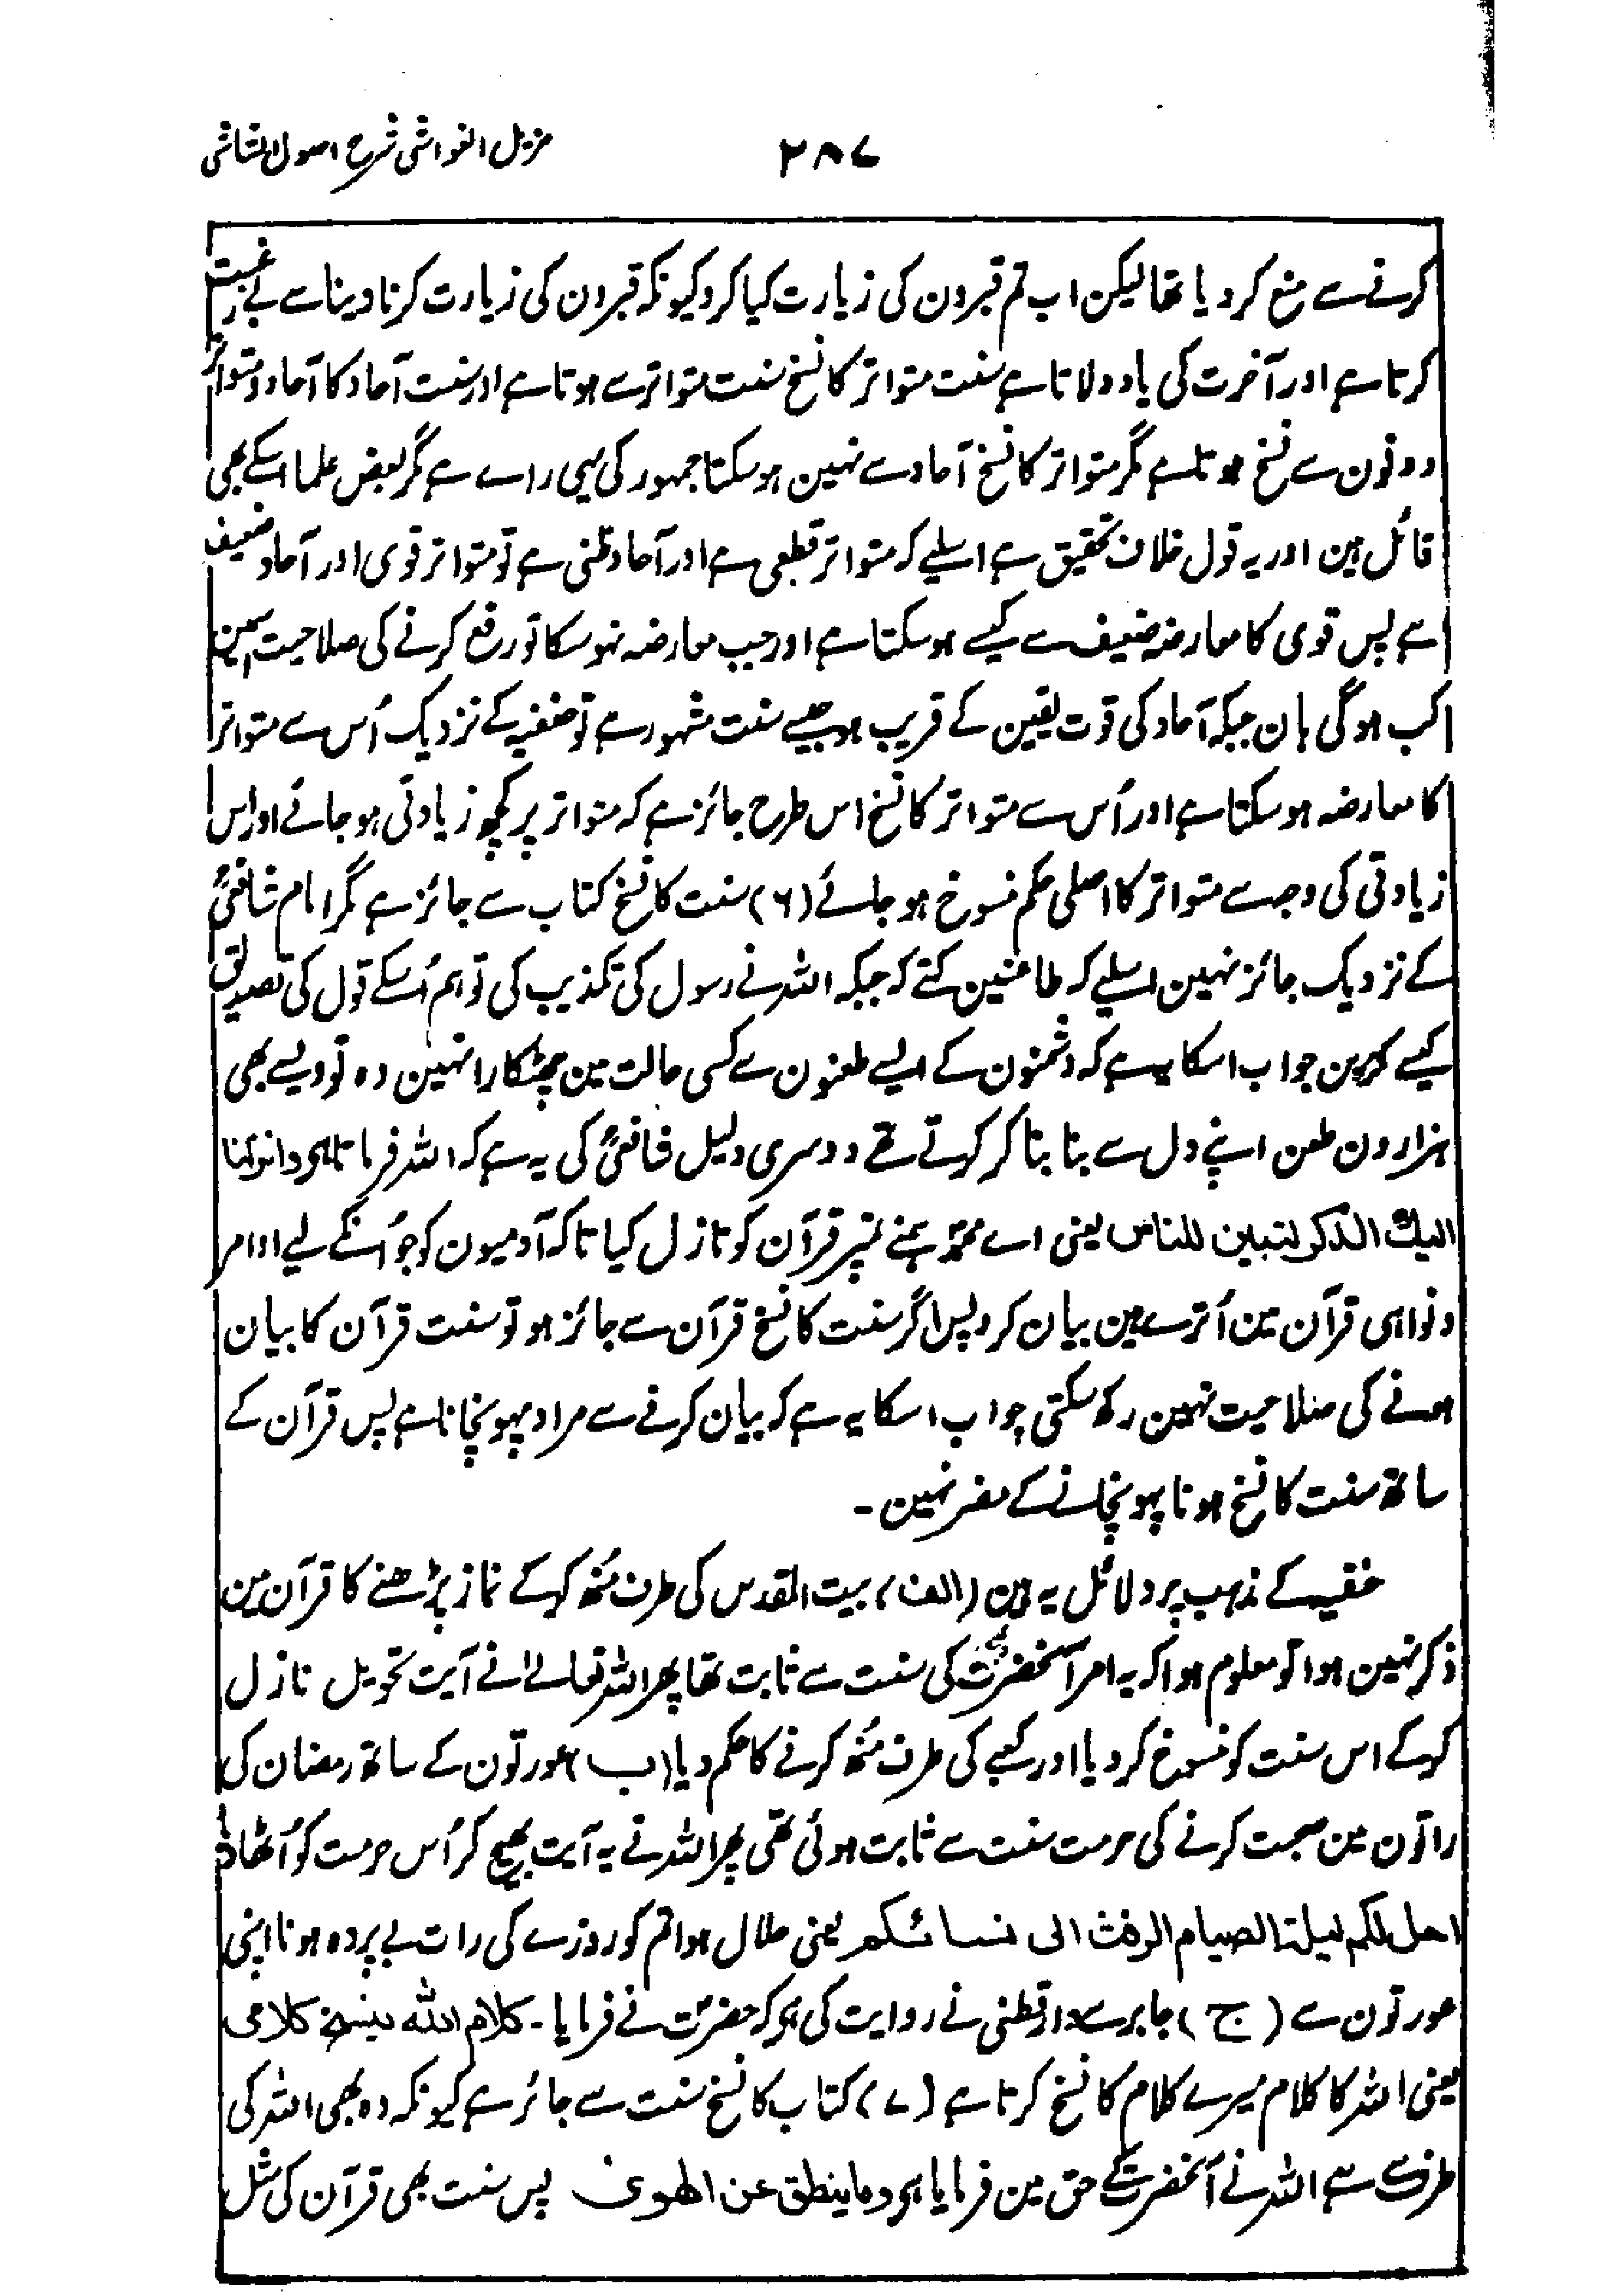 مزیل الغواشی شرح اصول الشاشی
۲۸۷
کرنے سے منع کر دیا تھا لیکن اب تم قبرون کی زیارت کیا کرو کیونکہ قبرون کی زیارت کرنا دنیا سے بے رغبت
کرتا ہے اور آخرت کی یاد دلاتا ہے سنت متواتر کا نسخ سنت متواتر سے ہوتا ہے اور سنت آحاد کا آحاد و متواتر
دونون سے نسخ ہوتا ہے مگر متواتر کا نسخ آحاد سے نہین ہو سکتا جمہور کی یہی راے ہے مگر بعض علما اسکے بھی
قائل ہین اور یہ قول خلاف تحقیق ہے اسلیے کہ متواتر قطعی ہے اور آحاد ظنی ہے تو متواتر قوی اور آحاد ضعیف
ہے پس قوی کا معارضہ ضعیف سے کیسے ہو سکتا ہے اور جب معارضہ نہو سکا تو رفع کرنے کی صلاحیت اسمین
کب ہوگی ہان جبکہ آحاد کی قوت یقین کے قریب ہو جیسے سنت مشہور ہے تو حنفیہ کے نزدیک اُس سے متواتر
کا معارضہ ہو سکتا ہے اور اُس سے متواتر کا نسخ اس طرح جائز ہے کہ متواتر پر کچھ زیادتی ہو جائے اور اس
زیادتی کی وجہ سے متواتر کا اصلی حکم منسوخ ہو جائے (۶) سنت کا نسخ کتاب سے جائز ہے مگر امام شافعیؒ
کے نزدیک جائز نہین اسلیے کہ طاعنین کہتے کہ جبکہ اللہ نے رسول کی تکذیب کی تو ہم اُسکے قول کی تصدیق
کیسے کرین جواب اسکا یہ ہے کہ دشمنون کے ایسے طعنون سے کسی حالت مین چھٹکارا نہین وہ تو ویسے بھی
ہزارون طعن اپنے دل سے بنا بنا کر کرتے تھے دوسری دلیل شافعیؒ کی یہ ہے کہ اللہ فرماتا ہے وانزلنا
الیك الذکر لتبین للناس یعنی اے محمدؐ ہمنے تمپر قرآن کو نازل کیا تاکہ آدمیون کو جو اُنکے لیے اوامر
و نواہی قرآن مین اُترے ہین بیان کرو پس اگر سنت کا نسخ قرآن سے جائز ہو تو سنت قرآن کا بیان
ہونے کی صلاحیت نہین رکھ سکتی جواب اسکا یہ ہے کہ بیان کرنے سے مراد پہونچانا ہے پس قرآن کے
ساتھ سنت کا نسخ ہونا پہونچانے کے مضر نہین ۔
حنفیہ کے مذہب پر دلائل یہ ہین (الف) بیت المقدس کی طرف مُنھ کرکے نماز پڑھنے کا قرآن مین
ذکر نہین ہوا تو معلوم ہوا کہ یہ امر آنحضرتؐ کی سنت سے ثابت تھا پھر اللہ تعالے نے آیت تحویل نازل
کرکے اس سنت کو منسوخ کر دیا اور کعبے کی طرف مُنھ کرنے کا حکم دیا (ب) عورتون کے ساتھ رمضان کی
راتون مین صحبت کرنے کی حرمت سنت سے ثابت ہوئی تھی پھر اللہ نے یہ آیت بھیج کر اُس حرمت کو اُٹھا دیا
احل لکم لیلۃ الصیام الرفث الی نسائکم یعنی حلال ہوا تم کو روزے کی رات بے پردہ ہونا اپنی
عورتون سے (ج) جابر سے دارقطنی نے روایت کی ہے کہ حضرتؐ نے فرمایا ۔ کلام الله ینسخ کلامی
یعنی اللہ کا کلام میرے کلام کا نسخ کرتا ہے (۷) کتاب کا نسخ سنت سے جائز ہے کیونکہ وہ بھی اللہ کی
طرف سے ہے اللہ نے آنحضرتؐ کے حق مین فرمایا ہے وما ینطق عن الھوی پس سنت بھی قرآن کی مثل